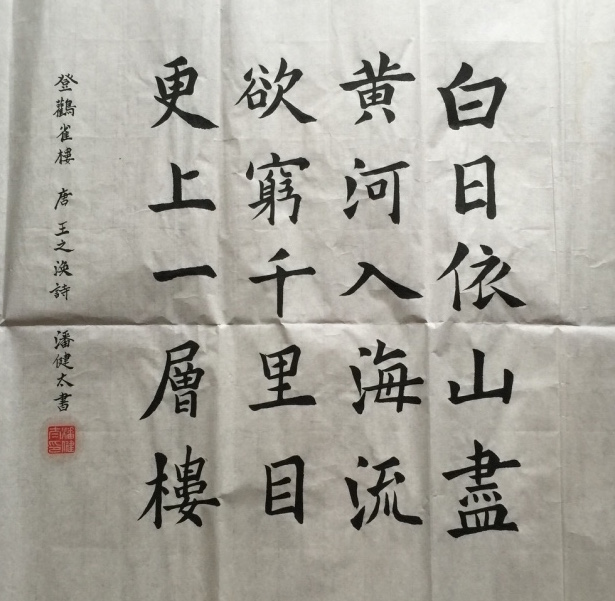 白日依山盡
黄河入海流
欲窮千里目
更上一層樓
登鸛雀樓 唐 王之渙詩 潘健太書